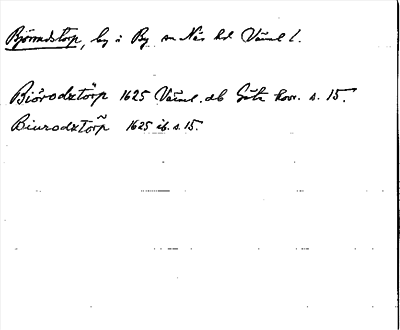 Björnrdstorp, by i By sn Näs hd Värml l.
Biörodxtörp 1625 Värml. db Göta hovr. s. 15.
Biurodxtörp 1625 ib. s. 15.